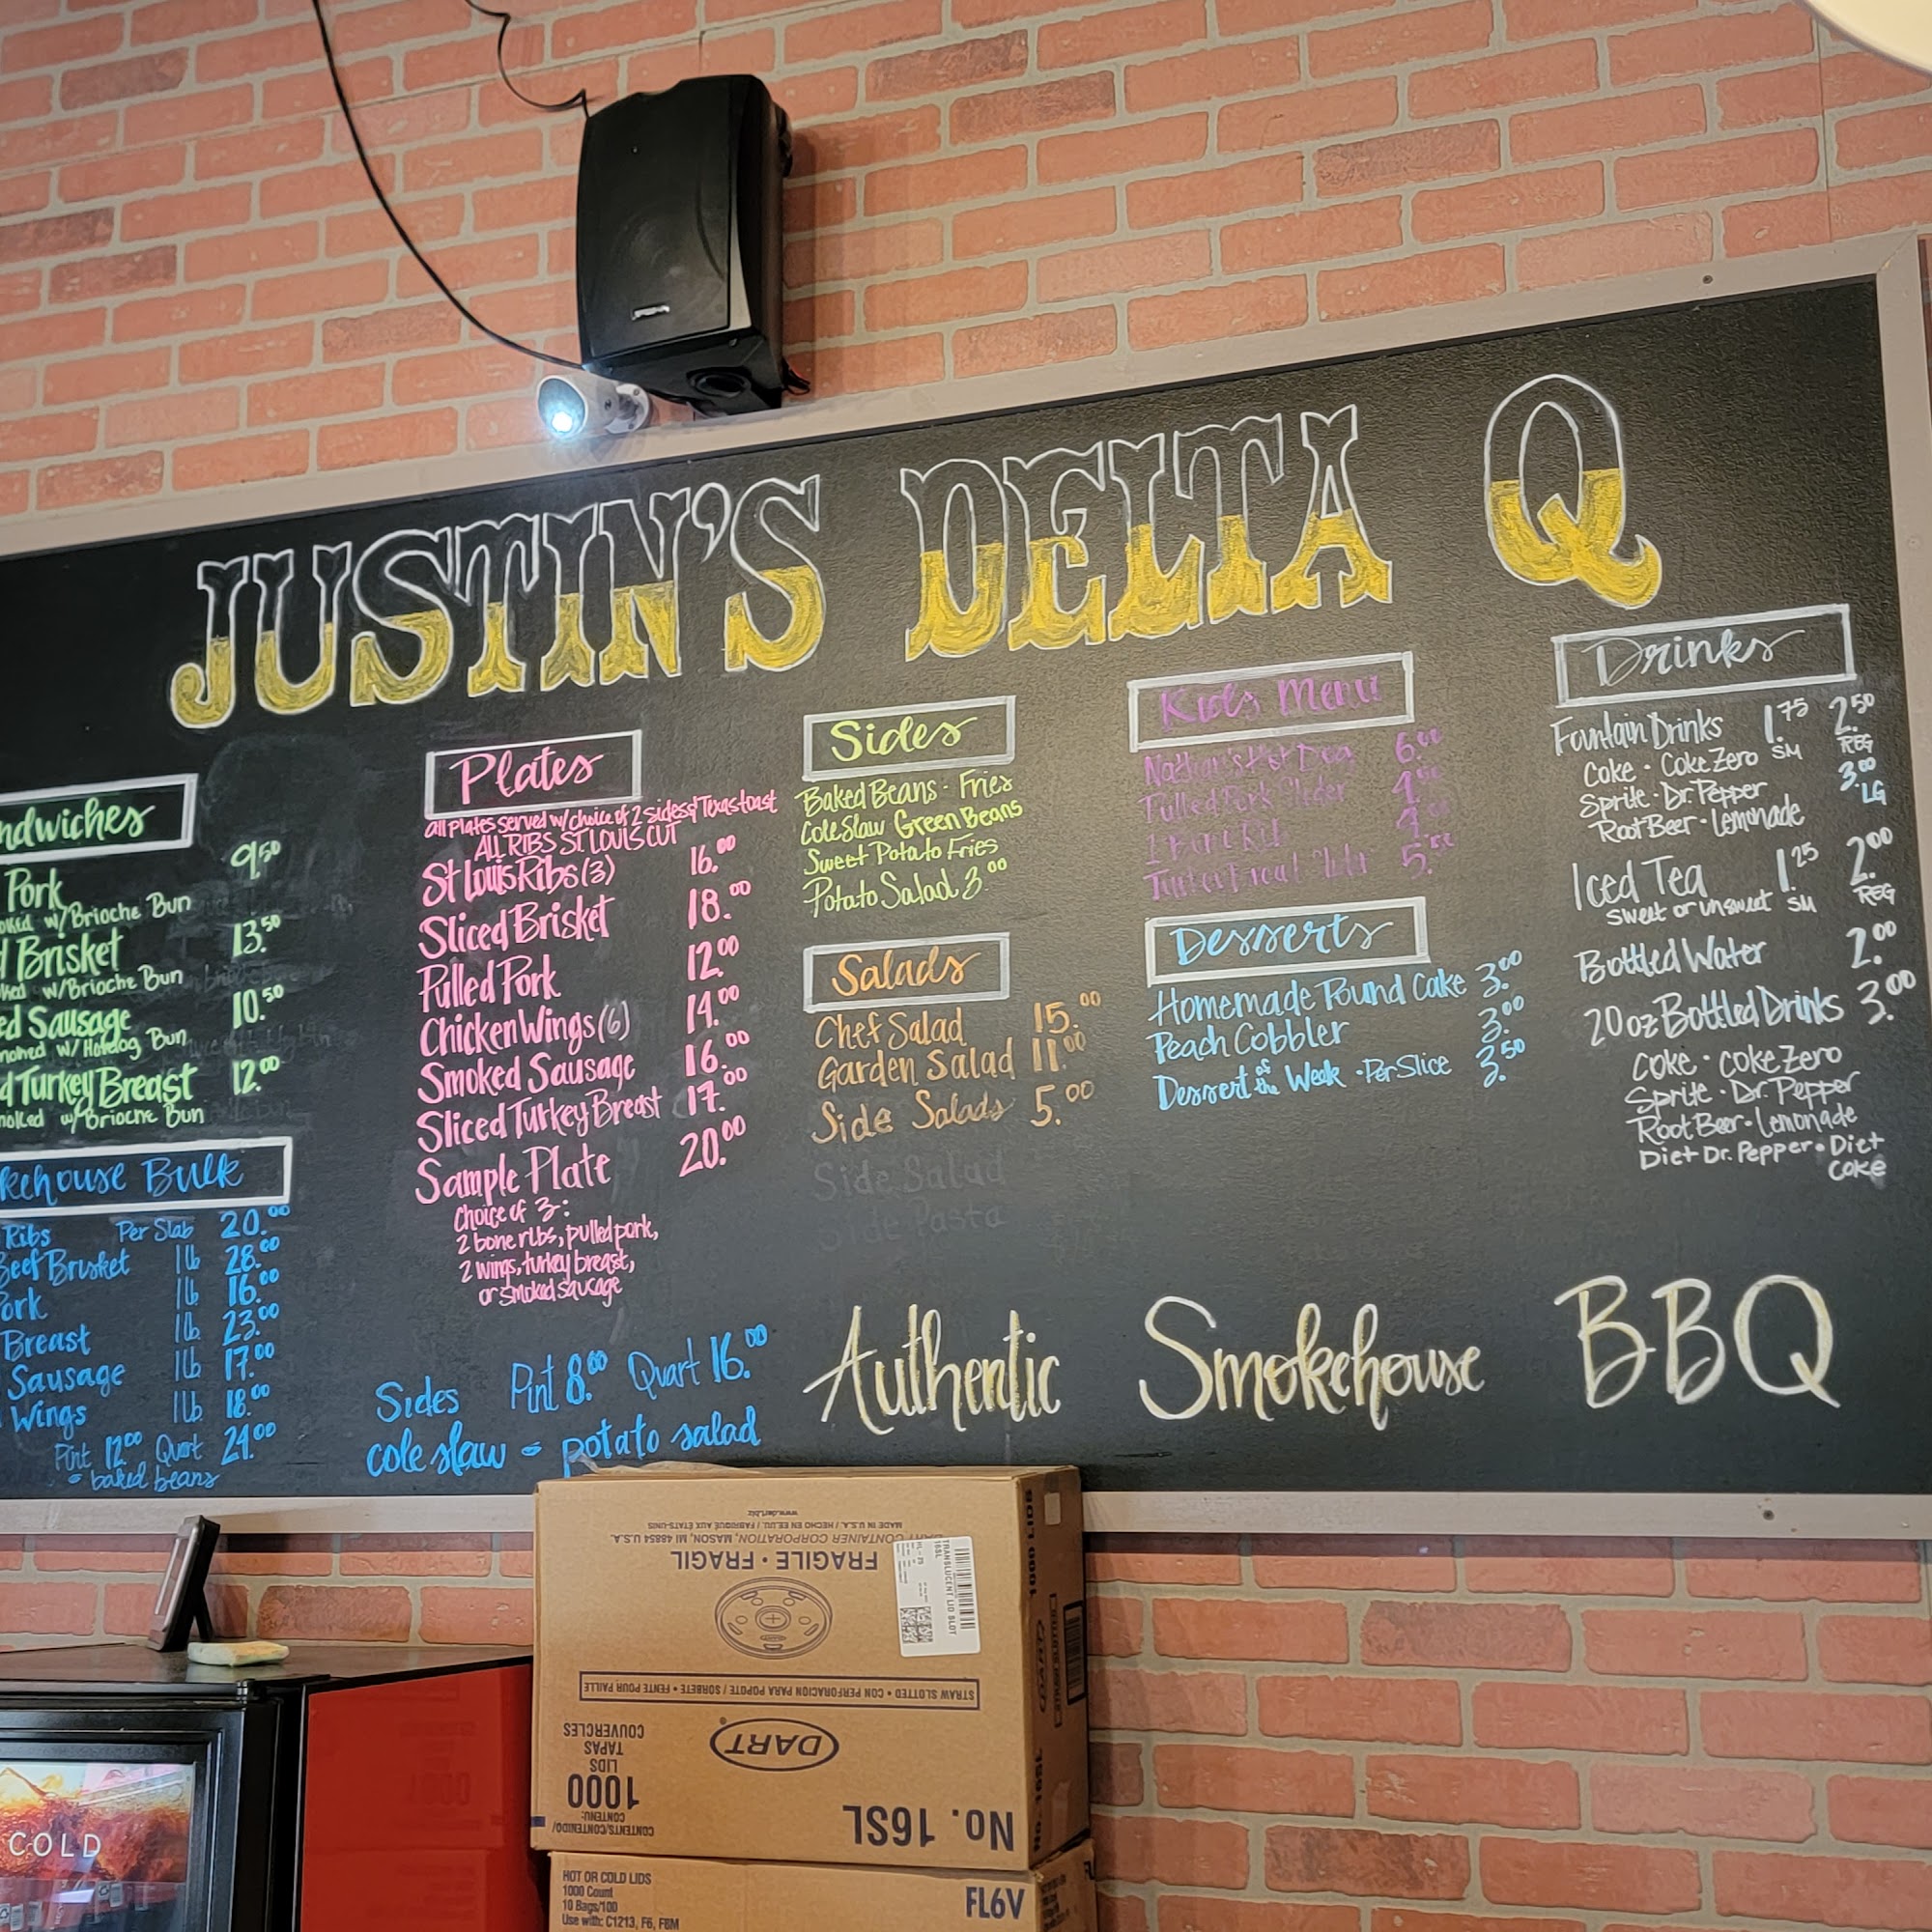 JUSTIN'S DELTA Q
ndwiches
Pork 9.50
oked w/Brioche Bun
d Brisket 13.50
oked w/Brioche Bun
ed Sausage 10.50
moked w/ Hotdog Bun
d Turkey Breast 12.00
moked w/Brioche Bun
kehouse Bulk
Ribs Per Slab 20.00
Beef Brisket 1 lb 28.00
ork 1 lb 16.00
Breast 1 lb 23.00
Sausage 1 lb 17.00
Wings 1 lb 18.00
Pint 12.00 Quart 24.00
baked beans
Plates
all Plates served w/ choice of 2 sides & Texas toast
ALL RIBS ST LOUIS CUT
St Louis Ribs (3) 16.00
Sliced Brisket 18.00
Pulled Pork 12.00
Chicken Wings (6) 14.00
Smoked Sausage 16.00
Sliced Turkey Breast 17.00
Sample Plate 20.00
Choice of 3:
2 bone ribs, pulled pork,
2 wings, turkey breast,
or smoked sausage
Sides Pint 8.00 Quart 16.00
cole slaw - potato salad
Sides
Baked Beans - Fries
Cole Slaw Green Beans
Sweet Potato Fries
Potato Salad 3.00
Salads
Chef Salad 15.00
Garden Salad 11.00
Side Salads 5.00
Side Salad
Side Pasta
Kids Menu
Nathan's Hot Dog 6.00
Pulled Pork Slider
Desserts
Homemade Pound Cake 3.00
Peach Cobbler 3.00
Dessert of the Week - Per Slice 3.50
Drinks
Fountain Drinks 1.75 SM 2.50 REG
Coke • Coke Zero
Sprite • Dr. Pepper 3.00 LG
Root Beer • Lemonade
Iced Tea 1.25 SM 2.00 REG
sweet or unsweet
Bottled Water 2.00
20 oz Bottled Drinks 3.00
Coke • Coke Zero
Sprite • Dr. Pepper
Root Beer • Lemonade
Diet Dr. Pepper • Diet
Coke
Authentic Smokehouse BBQ
No. 16SL
CONTENTS/CONTENIDO/
CONTENU:
1000
LIDS
TAPAS
COUVERCLES
DART
STRAW SLOTTED • CON PERFORACION PARA POPOTE / SORBETE • FENTE POUR PAILLE
FRAGILE • FRAGIL
DART CONTAINER CORPORATION, MASON, MI 48854 U.S.A.
MADE IN U.S.A. / HECHO EN EE.UU. / FABRIQUÉ AUX ÉTATS-UNIS
www.dart.biz
TRANSLUCENT LID SLOT
16SL
1000 LIDS
DART
No. 16SL
HOT OR COLD LIDS
1000 Count
10 Bags/100
Use with: C1213, F6, F8M
FL6V
COLD